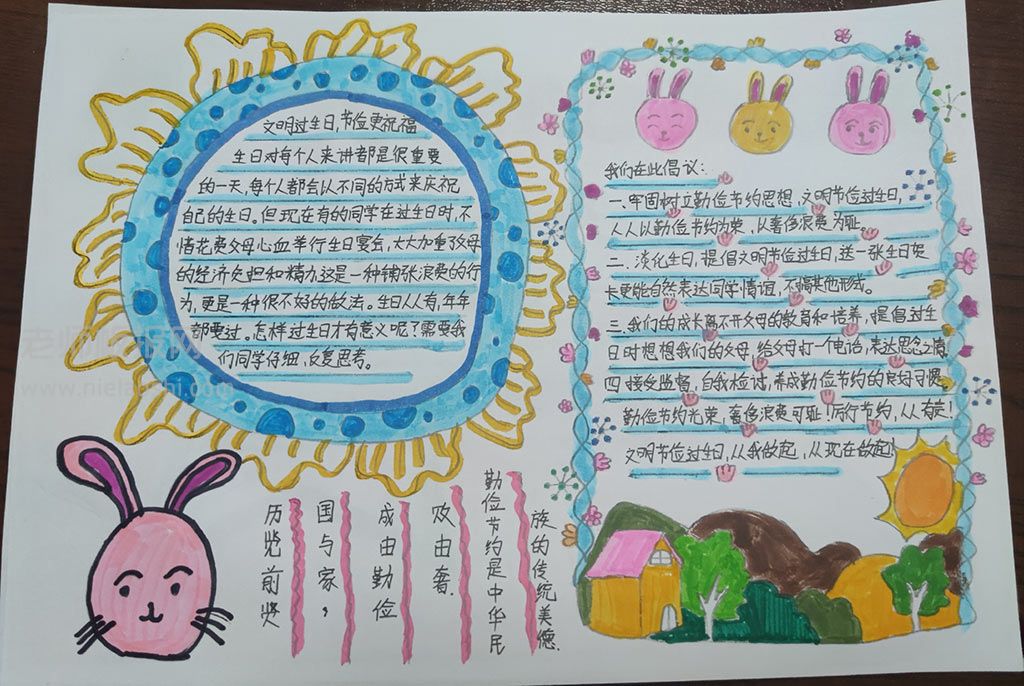 文明过生日,节俭更祝福
生日对每个人来讲都是很重要
的一天,每个人都会以不同的方式来庆祝
自己的生日。但现在有的同学在过生日时,不
惜花费父母心血举行生日宴会,大大加重了父母
的经济负担和精力。这是一种铺张浪费的行
为,更是一种很不好的做法。生日人人有,年年
都要过。怎样过生日才有意义呢?需要我
们同学仔细,反复思考。
我们在此倡议:
一、牢固树立勤俭节约思想,文明节俭过生日,
人人以勤俭节约为荣,以奢侈浪费为耻。
二、淡化生日,提倡文明节俭过生日,送一张生日贺
卡更能自然表达同学情谊,不搞其他形式。
三、我们的成长离不开父母的教育和培养,提倡过生
日时想想我们的父母,给父母打一个电话,表达思念之情
四、接受监督,自我检讨,养成勤俭节约的良好习惯
勤俭节约光荣,奢侈浪费可耻!厉行节约,人人有责!
文明节俭过生日,从我做起,从现在做起!
历览前贤
国与家,
成由勤俭
败由奢.
勤俭节约是中华民
族的传统美德.
老师帮帮网